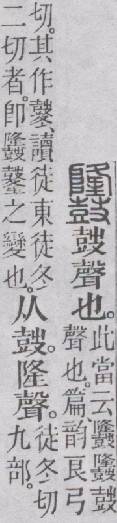 鼓聲也。
此當云鼓
聲也。篇韵良弓
切。其作鼕、讀徒東徒冬
二切者。卽之變也。
从鼓。隆聲。
徒冬切
九部。